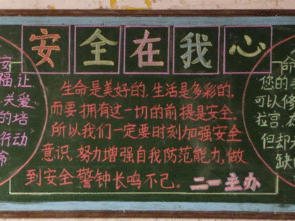 安全在我心
生命是美好的,生活是多彩的,
而要拥有这一切的前提是安全,
所以我们一定要时刻加强安全
意识,努力增强自我防范能力,做
到安全警钟长鸣不已。
二一主办
安
福,让
关爱
的墙
行动
命
您的
可以修
拉宫,
但却
缺